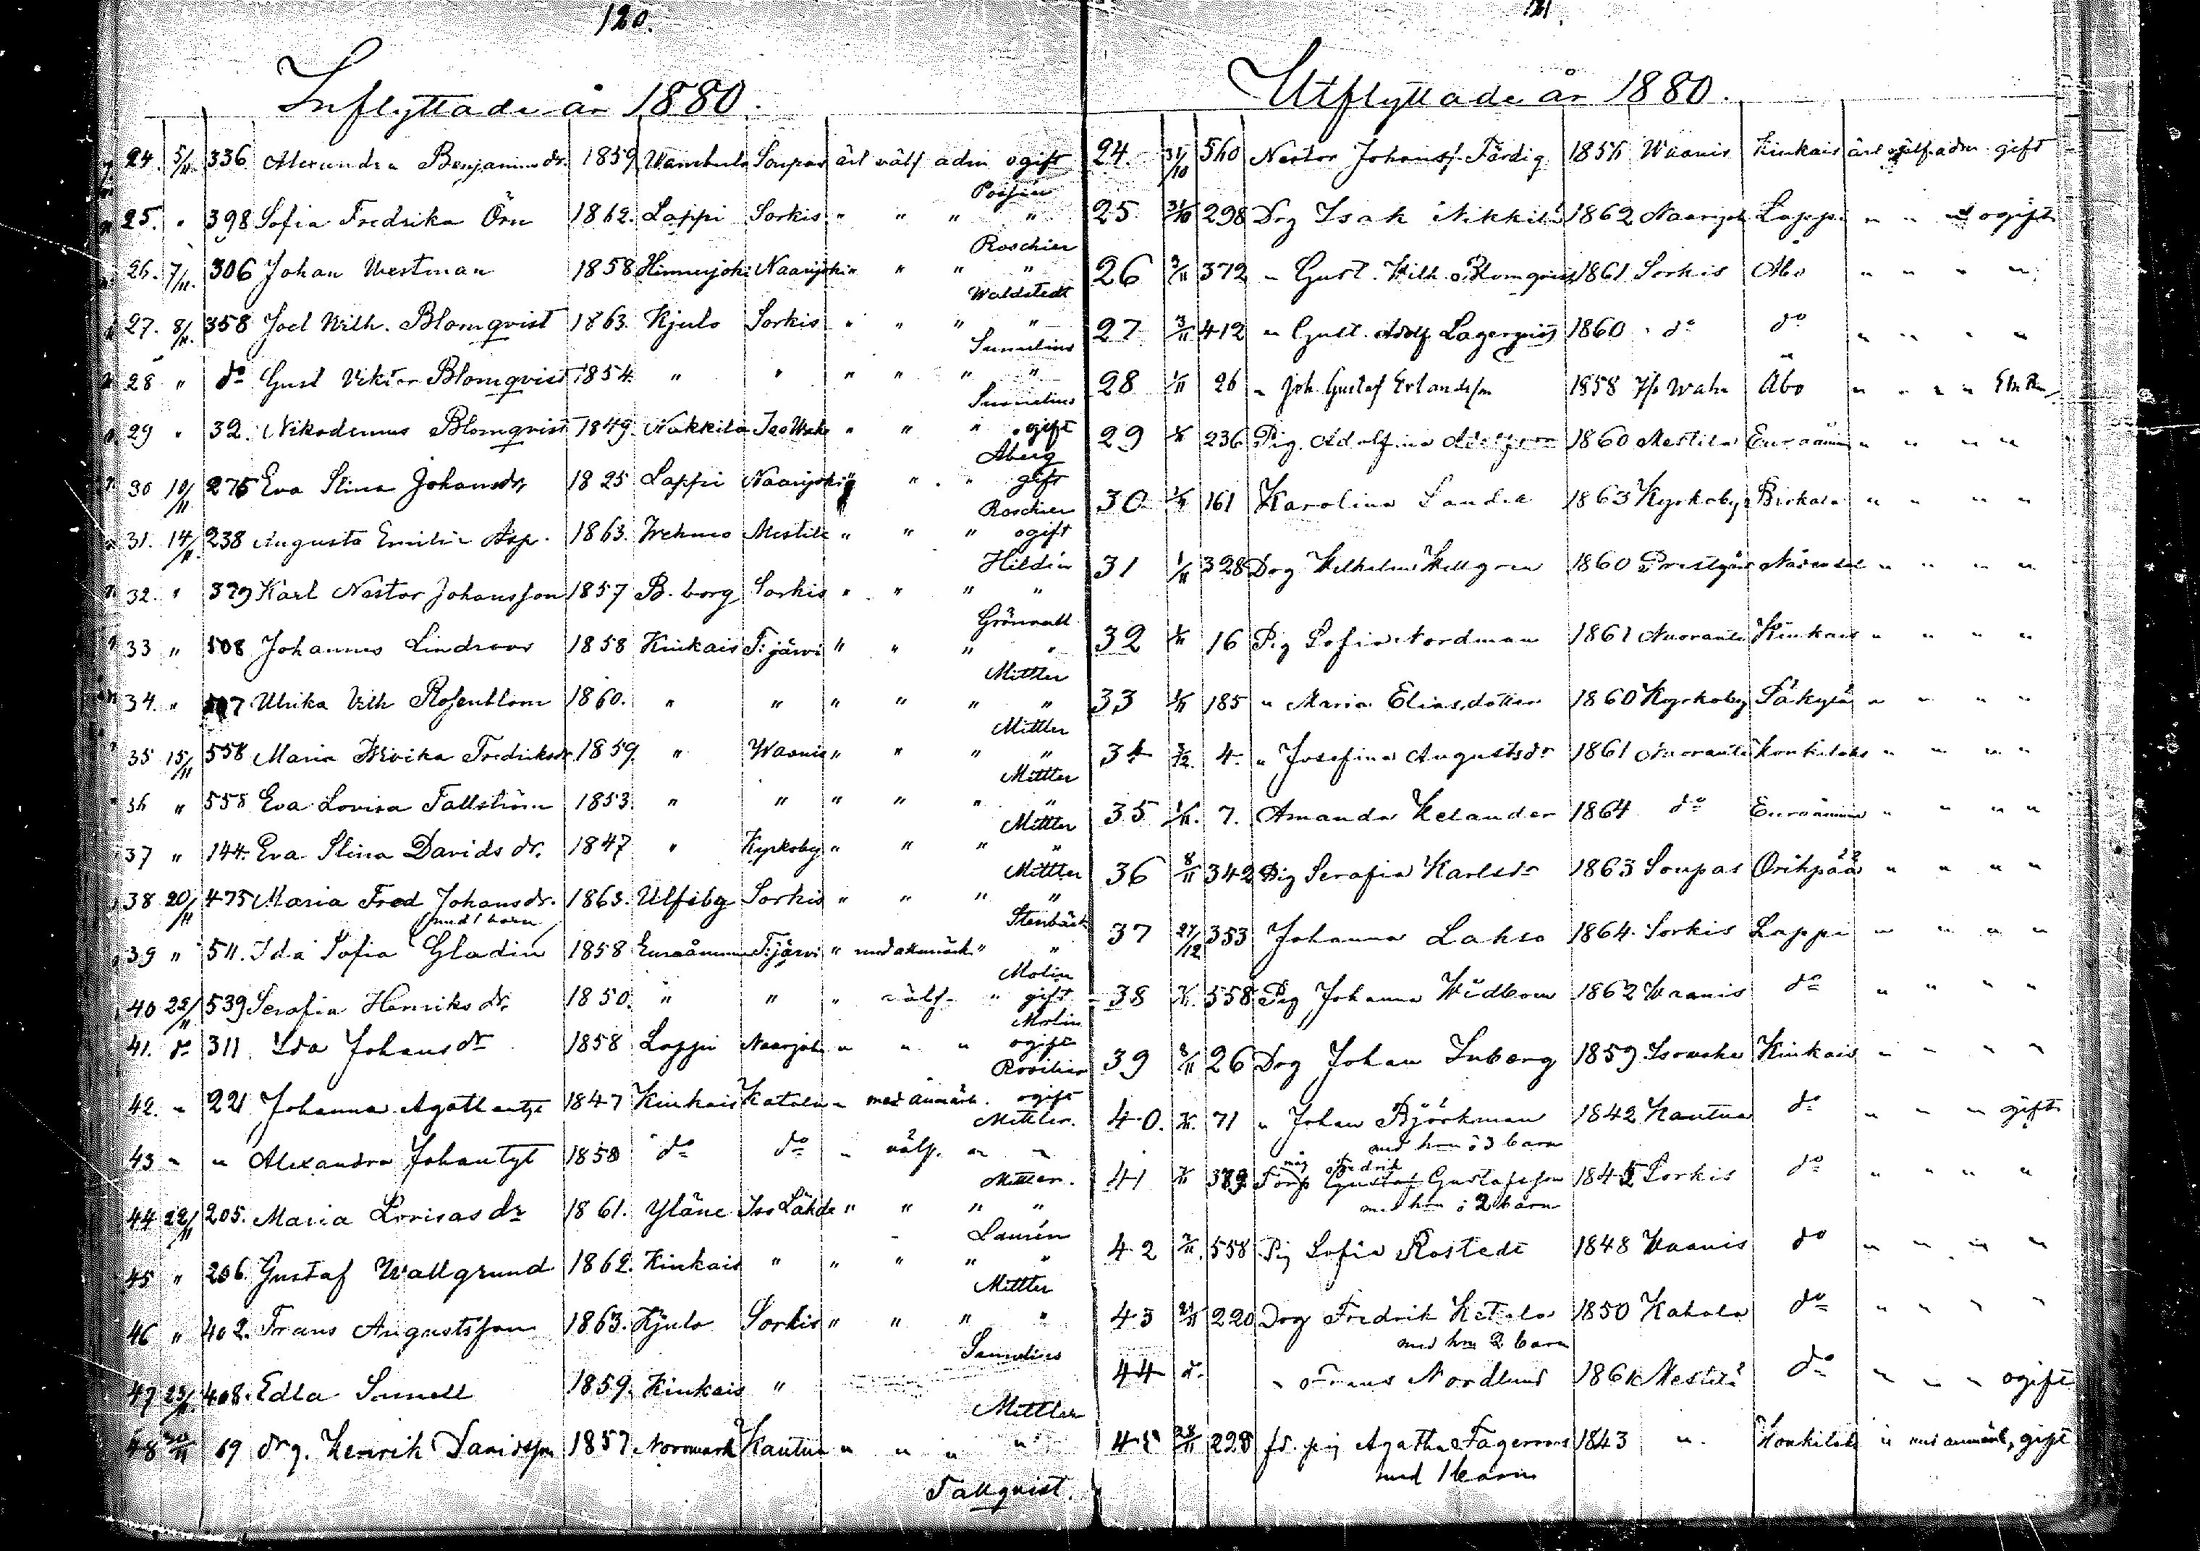 120.
Inflyttade år 1880.
24. 5/11. 336 Alexandra Benjaminsdr. 1859 Wambula Soupas ärl välf admi ogift
Poppius
25. " 398 Sofia Fredrika Örn 1862. Lappi Sorkis " " " "
Roschier
26. 7/11. 306 Johan Westman 1858 Hinnerjoki Naarjoki " " " "
Waldstedt
27. 8/11. 358 Joel Wilh. Blomqvist 1863. Kjulo Sorkis " " " "
Sumelius
28 " do Gust Viktor Blomqvist 1854. " " " " " "
Sumelius
29 " 32. Nikodemus Blomqvist 1849. Nakkila Iso Waha " " " ogift
Åberg
30 10/11 275 Eva Stina Johansdr 1825 Lappi Naarjoki " " " gift
Roschier
31. 14/11. 238 Augusta Emilia Asp. 1863. Wehmo Mestilä " " " ogift
Hildén
32. " 379 Karl Nestor Johansson 1857 B.borg Sorkis " " " "
Grönvall
33 " 508 Johannes Lindroos 1858 Kiukais T:järvi " " " "
Mittler
34. " Ulrika Vilh Rosenblom 1860. " " " " " "
Mittler
35 15/11 558 Maria Fredriksdr. 1859. " Waanis " " " "
Mittler
36 " 558 Eva Lovisa Fallström 1853. " " " " " "
Mittler
37 " 144. Eva Stina Davidsdr. 1847 " Kyrkoby " " " "
Mittler
38 20/11 475 Maria Fred Johansdr. 1863. Ulfsby Sorkis " " " "
(med 1 barn) Stenbäck
39 " 511. Ida Sofia Gladin 1858 Euraåminne T:järvi " med anmärk " "
Molin
40 22/11 539 Serafia Henriksdr. 1850. " " " välf " gift
Molin
41. do 311 Ida Johansdr 1858 Lappi Naarjoki " " " ogift
Roschier
42. " 221 Johanna Agatha 1847 Kiukais Katala " med anmärk. ogift
Mittler.
43 " " Alexandra Johantyt 1858 do do " välf. " "
Mittler.
44 22/11 205. Maria Lovisasdr 1861. Yläne Iso Lähde " " " "
Laurén
45 " 206. Gustaf Wallgrund 1862. Kiukais " " " " "
Mittler
46 " 402. Frans Augustsson 1863. Kjulo Sorkis " " " "
Sumelius
47 23/11 408. Edla Sunell 1859. Kiukais "
Mittler
48 69 drg. Henrik Davidsson 1857 Norrmark Kautua " " " "
Tallqvist.
121.
Utflyttade år 1880.
24. 31/10 560 Nestor Johanss. Färdig 1856 Waanis Kiukais ärl välf adm. gift
25 31/10 298 Drg Isak Nikkilä 1862 Naarjoki Lappi " " " ogift
26 3/11 372 " Gust. Wilh. Blomqvist 1861 Sorkis Åbo " " " "
27 3/11 412 " Gust. Adolf Lagerqvist 1860 do do " " " "
28 1/11 26 " Joh. Gustaf Erlandsson 1858 Iso Waha Åbo " " " "
29 236 Pig. Adolfina 1860 Mestilä Euraåminne " " " "
30 161 Karolina Sandra 1863 Kyrkoby Birkala " " " "
31 1/11 328 Drg Wilhelm Hellgren 1860 Prestgård Nådendal " " " "
32 16 Pig Sofia Nordman 1861 Auvranta Kiukais " " " "
33 185 " Maria Eliasdotter 1860 Kyrkoby Säkylä " " " "
34 4. " Josefina Augustsdr 1861 Auvranta Honkilaks " " " "
35 7. Amanda Helander 1864 do Euraåminne " " " "
36 8/11 342 Pig Serafia Karlsdr 1863 Soupas Oripää " " " "
37 27/12 353 Johanna Lakso 1864. Sorkis Lappi " " " "
38 558 Pig Johanna Widbom 1862 Waanis do " " " "
39 26 Drg Johan Inberg 1859 Isowaha Kiukais " " " "
40. 71 " Johan Björkman 1842 Kautua do " " " gift
med hu o 3 barn
41 389 Torp Fredrik Gustafsson 1845 Sorkis do " " " "
med hu o 2 barn
42 558 Pig Sofia Rostedt 1848 Waanis do " " " "
43 220 Drg Fredrik Ketola 1850 Kahala do " " " "
med hu 2 barn
44 do " Frans Nordlund 1861 Mestilä do " " " ogift
45 228 fd. pig Agatha Fagerroos 1843 " Honkilaks " med anmärk, gift
med 1 barn